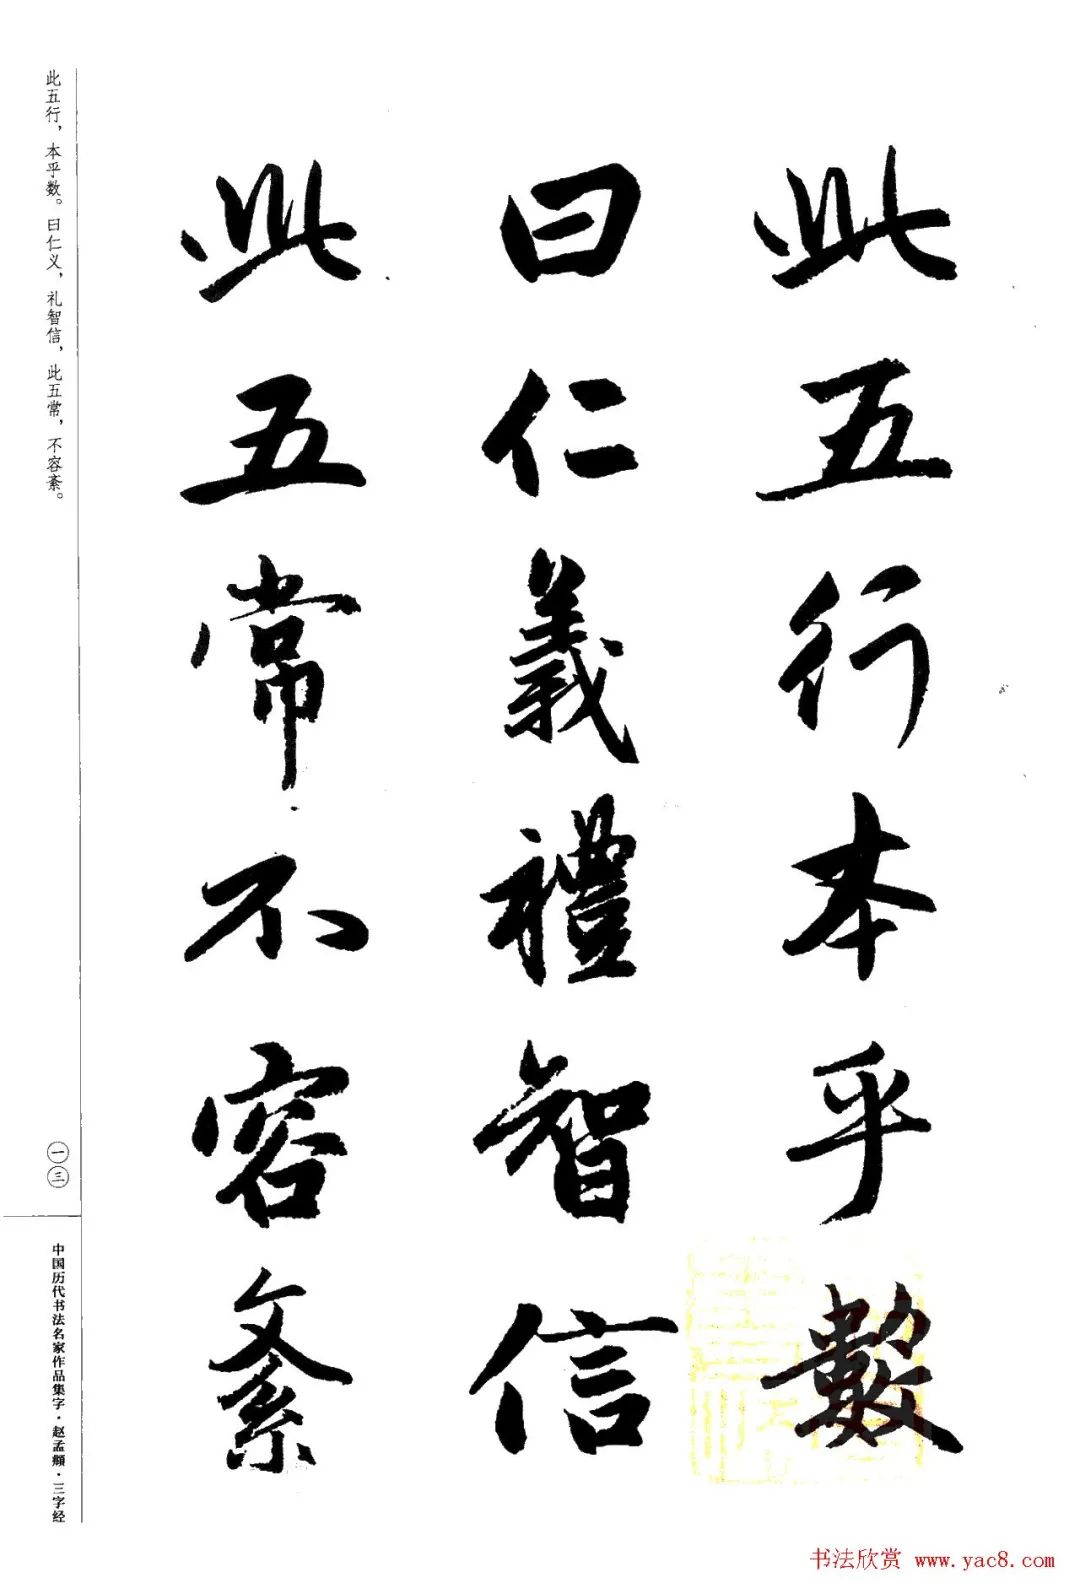 此五行本乎數
曰仁義禮智信
此五常不容紊
此五行，本乎数。曰仁义，礼智信，此五常，不容紊。
一三
中国历代书法名家作品集字·赵孟頫·三字经
书法欣赏 www.yac8.com